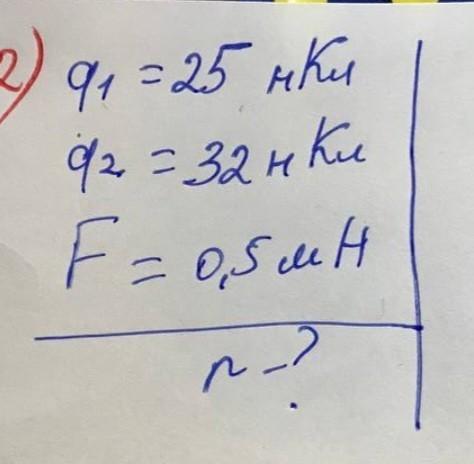 2) q1 = 25 нКл
q2 = 32 нКл
F = 0,5 мН
r - ?